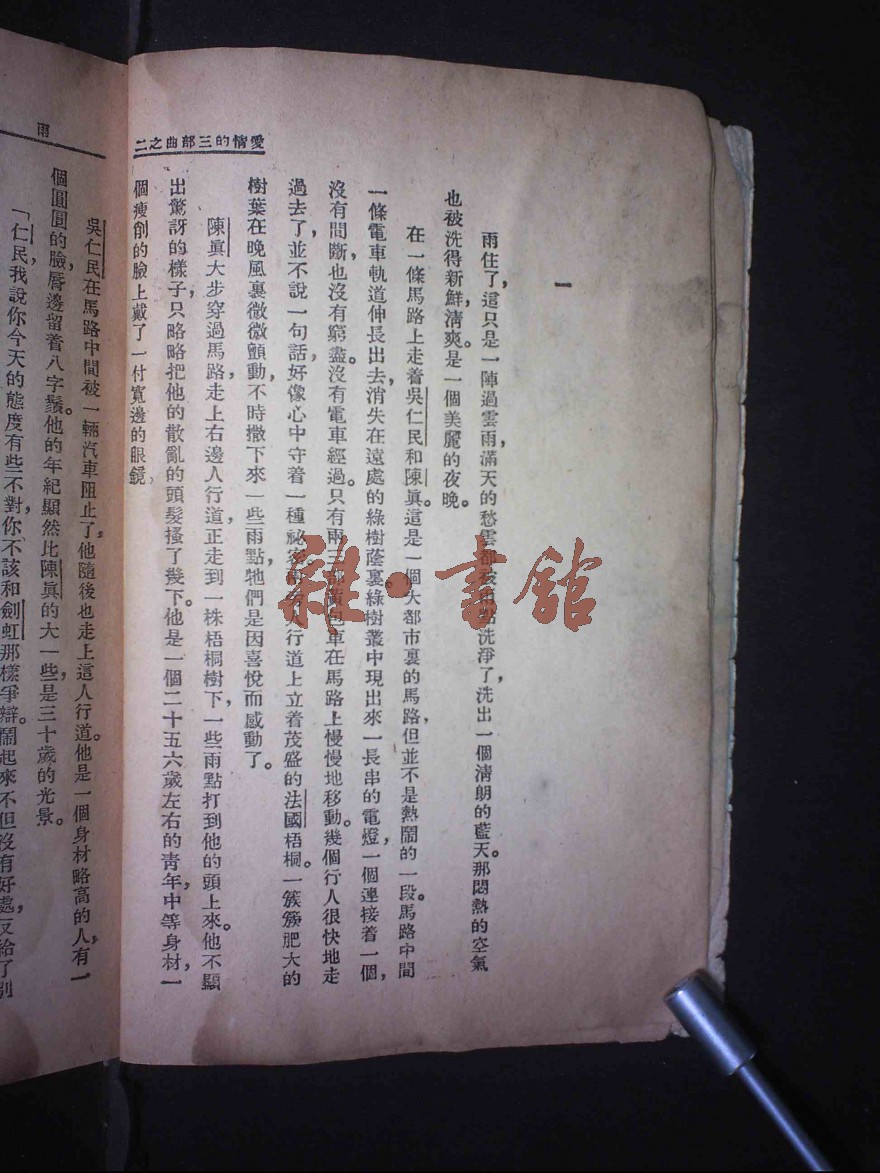 愛情的三部曲之二
一
雨住了，這只是一陣過雲雨，滿天的愁雲都被雨點洗淨了，洗出一個清朗的藍天。那悶熱的空氣
也被洗得新鮮，清爽。是一個美麗的夜晚。
在一條馬路上走着吳仁民和陳眞。這是一個大都市裏的馬路，但並不是熱鬧的一段。馬路中間
一條電車軌道伸長出去，消失在遠處的綠樹蔭裏。綠樹叢中現出來一長串的電燈，一個連接着一個，
沒有間斷，也沒有窮盡。沒有電車經過。只有兩三部黃包車在馬路上慢慢地移動。幾個行人很快地走
過去了，並不說一句話，好像心中守着一種祕密 人行道上立着茂盛的法國梧桐。一簇簇肥大的
樹葉在晚風裏微微顫動，不時撒下來一些雨點，牠們是因喜悅而感動了。
陳眞大步穿過馬路，走上右邊人行道，正走到一株梧桐樹下，一些雨點打到他的頭上來。他不顯
出驚訝的樣子，只略略把他的散亂的頭髮搔了幾下。他是一個二十五六歲左右的靑年，中等身材，一
個瘦削的臉上戴了一付寬邊的眼鏡。
雨
吳仁民在馬路中間被一輛汽車阻止了，他隨後也走上這人行道。他是一個身材略高的人，有一
個圓圓的臉，脣邊留着八字鬚。他的年紀顯然比陳眞的大一些，是三十歲的光景。
「仁民，我說你今天的態度有些不對，你不該和劍虹那樣爭辯。鬧起來不但沒有好處，反給了別
雜·書館